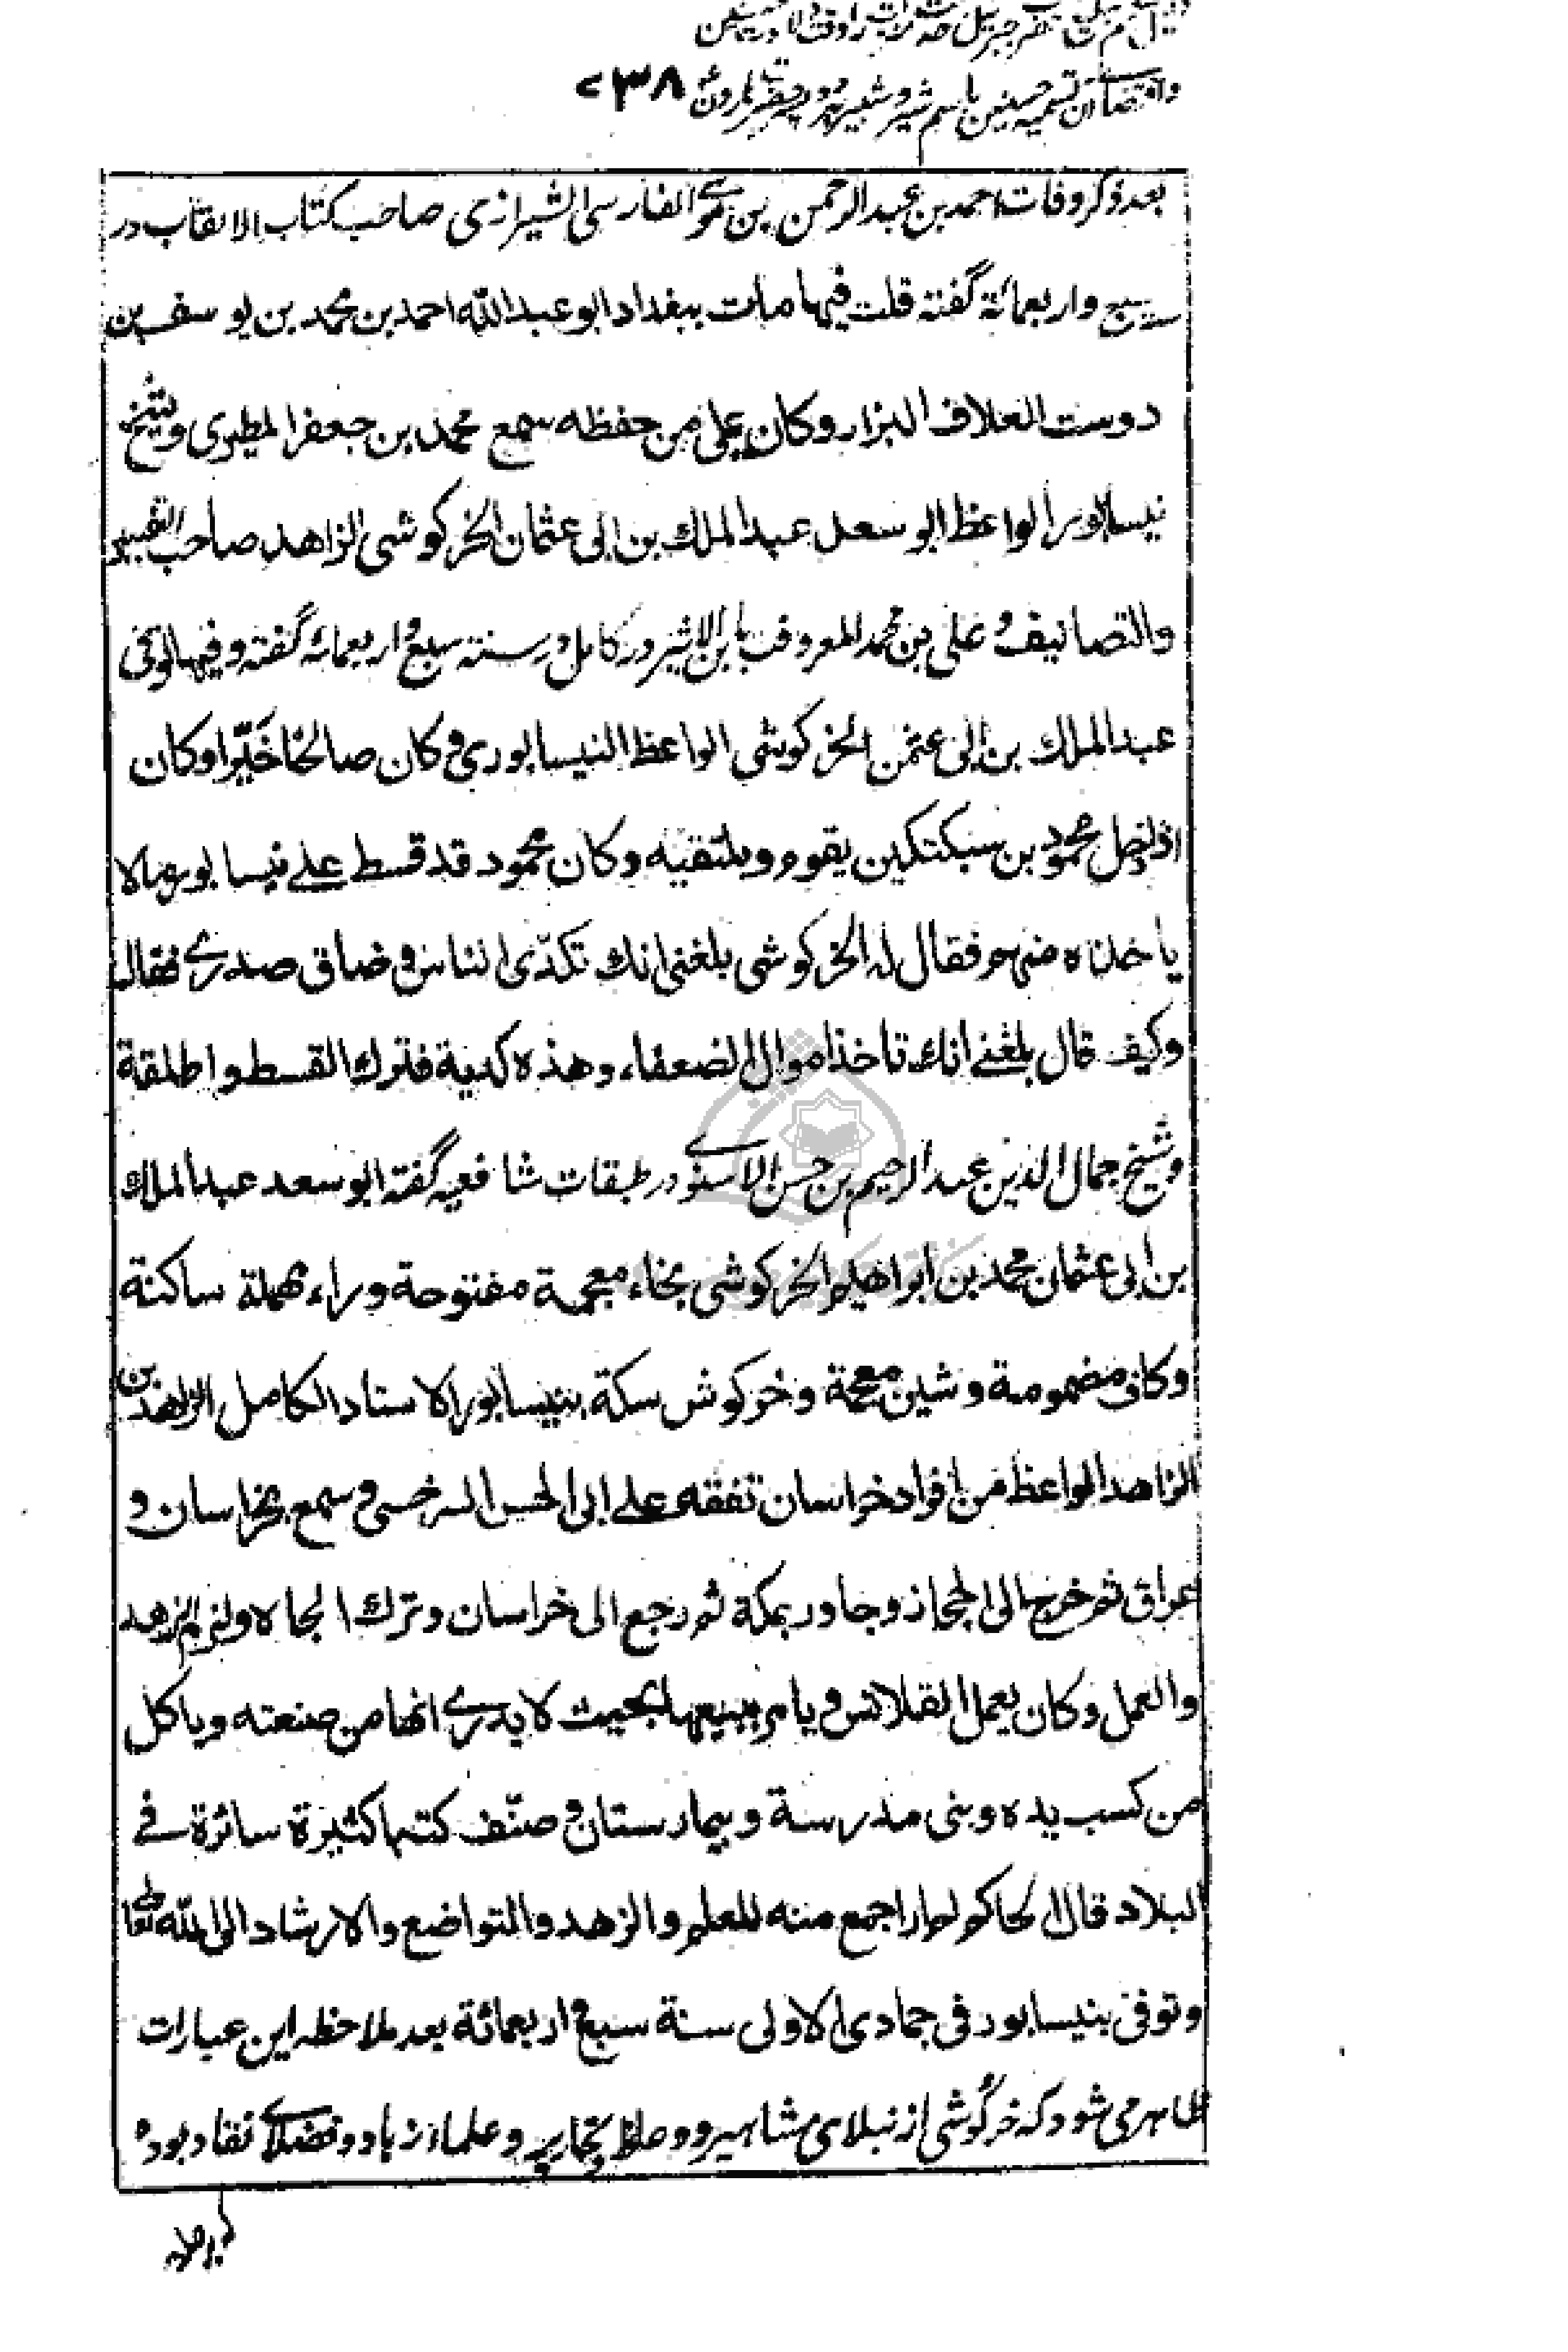 جبرئیل
تسمیه حسنین باسم شبر و شبیر هارون ۷۳۸
بعد ذکر وفات احمد بن عبد الرحمن بن موسی الفارسی الشیرازی صاحب کتاب الالقاب در
سبع واربعمائة گفته قلت فیها مات ببغداد ابو عبد الله احمد بن محمد بن یوسف بن
دوست العلاف البزار وکان یملی من حفظه سمع محمد بن جعفر المطیری وشیخ
نیسابور الواعظ ابو سعد عبد الملك بن ابی عثمان الخرکوشی الزاهد صاحب التفسیر
والتصانیف و علی بن محمد المعروف بابن الاثیر در کامل در سنة سبع واربعمائه گفته وفیها توفی
عبد الملك بن ابی عثمن الخرکوشی الواعظ النیسابوری وکان صالحا خَیّرا وکان
اذا دخل محمود بن سبکتکین یقوم ویلتقیه وکان محمود قد قسط علی نیسابور مالا
یاخذه منهم فقال له الخرکوشی بلغنی انك تکدّی الناس وضاق صدری فقال
وکیف قال بلغنی انك تاخذ اموال الضعفاء وهذه کدیة فترك القسط واطلقة
وشیخ جمال الدین عبد الرحیم بن حسن الاسنوی در طبقات شافعیه گفته ابو سعد عبد الملك
بن ابی عثمان محمد بن ابراهیم الخرکوشی بخاء معجمة مفتوحة وراء مهملة ساکنة
وکاف مضمومة وشین معجمة وخرکوش سکة بنیسابور الاستاد الکامل الزاهد بن
الزاهد الواعظ من افراد خراسان تفقه علی ابی الحسن السرخسی وسمع بخراسان و
عراق ثم خرج الی الحجاز وجاور بمکة ثم رجع الی خراسان وترك الجاه ولزم الزهد
والعمل وکان یعمل القلانس ویامر ببیعها بحیث لا یدری انها من صنعته ویاکل
من کسب یده وبنی مدرسة وبیمارستان وصنّف کتبا کثیرة سائرة فی
البلاد قال الحاکم لم ار اجمع منه للعلم والزهد والتواضع والارشاد الی الله تعالی
وتوفی بنیسابور فی جمادی الاولی سنة سبع واربعمائة بعد ملاحظه این عبارات
ظاهر می شود که خرگوشی از نبلای مشاهیر و وعاظ نحاریر و علماء زهاد و فضلای نقاد بوده